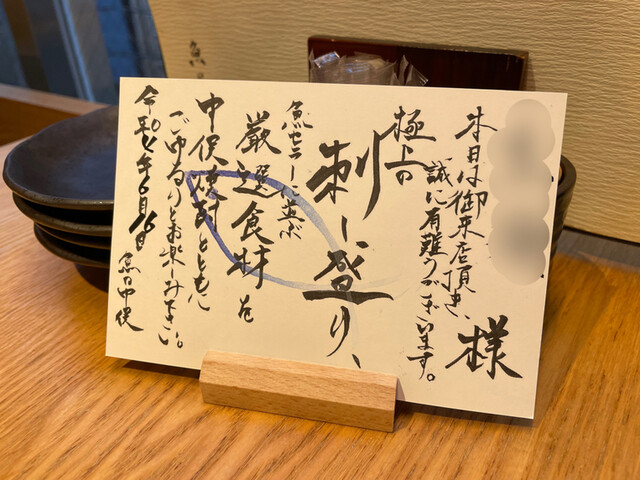 様
本日は御来店頂き、
誠に有難うございます。
極上の
刺し盛り、
魚セラーに並ぶ
厳選食材を
中俣焼酎とともに
ごゆるりとお楽しみ下さい。
令和4年6月16日 魚の中俣
魚の